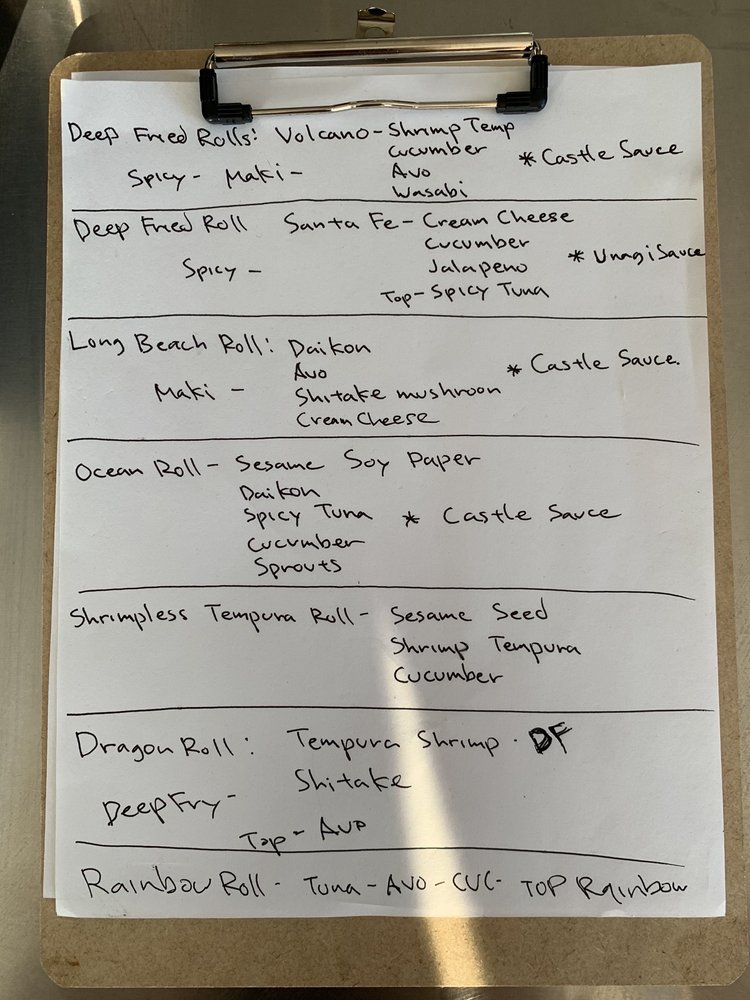 Deep Fried Rolls: Volcano - Shrimp Temp
Cucumber
Spicy - Maki - Avo * Castle Sauce
Wasabi
Deep Fried Roll Santa Fe - Cream Cheese
Cucumber
Spicy - Jalapeno * Unagi Sauce
Top - Spicy Tuna
Long Beach Roll: Daikon
Avo * Castle Sauce.
Maki - Shitake mushroon
Cream Cheese
Ocean Roll - Sesame Soy Paper
Daikon
Spicy Tuna * Castle Sauce
Cucumber
Sprouts
Shrimpless Tempura Roll - Sesame Seed
Shrimp Tempura
Cucumber
Dragon Roll: Tempura Shrimp. DF
Shitake
Deep Fry -
Top - Avo
Rainbow Roll - Tuna - Avo - CUC - TOP Rainbow